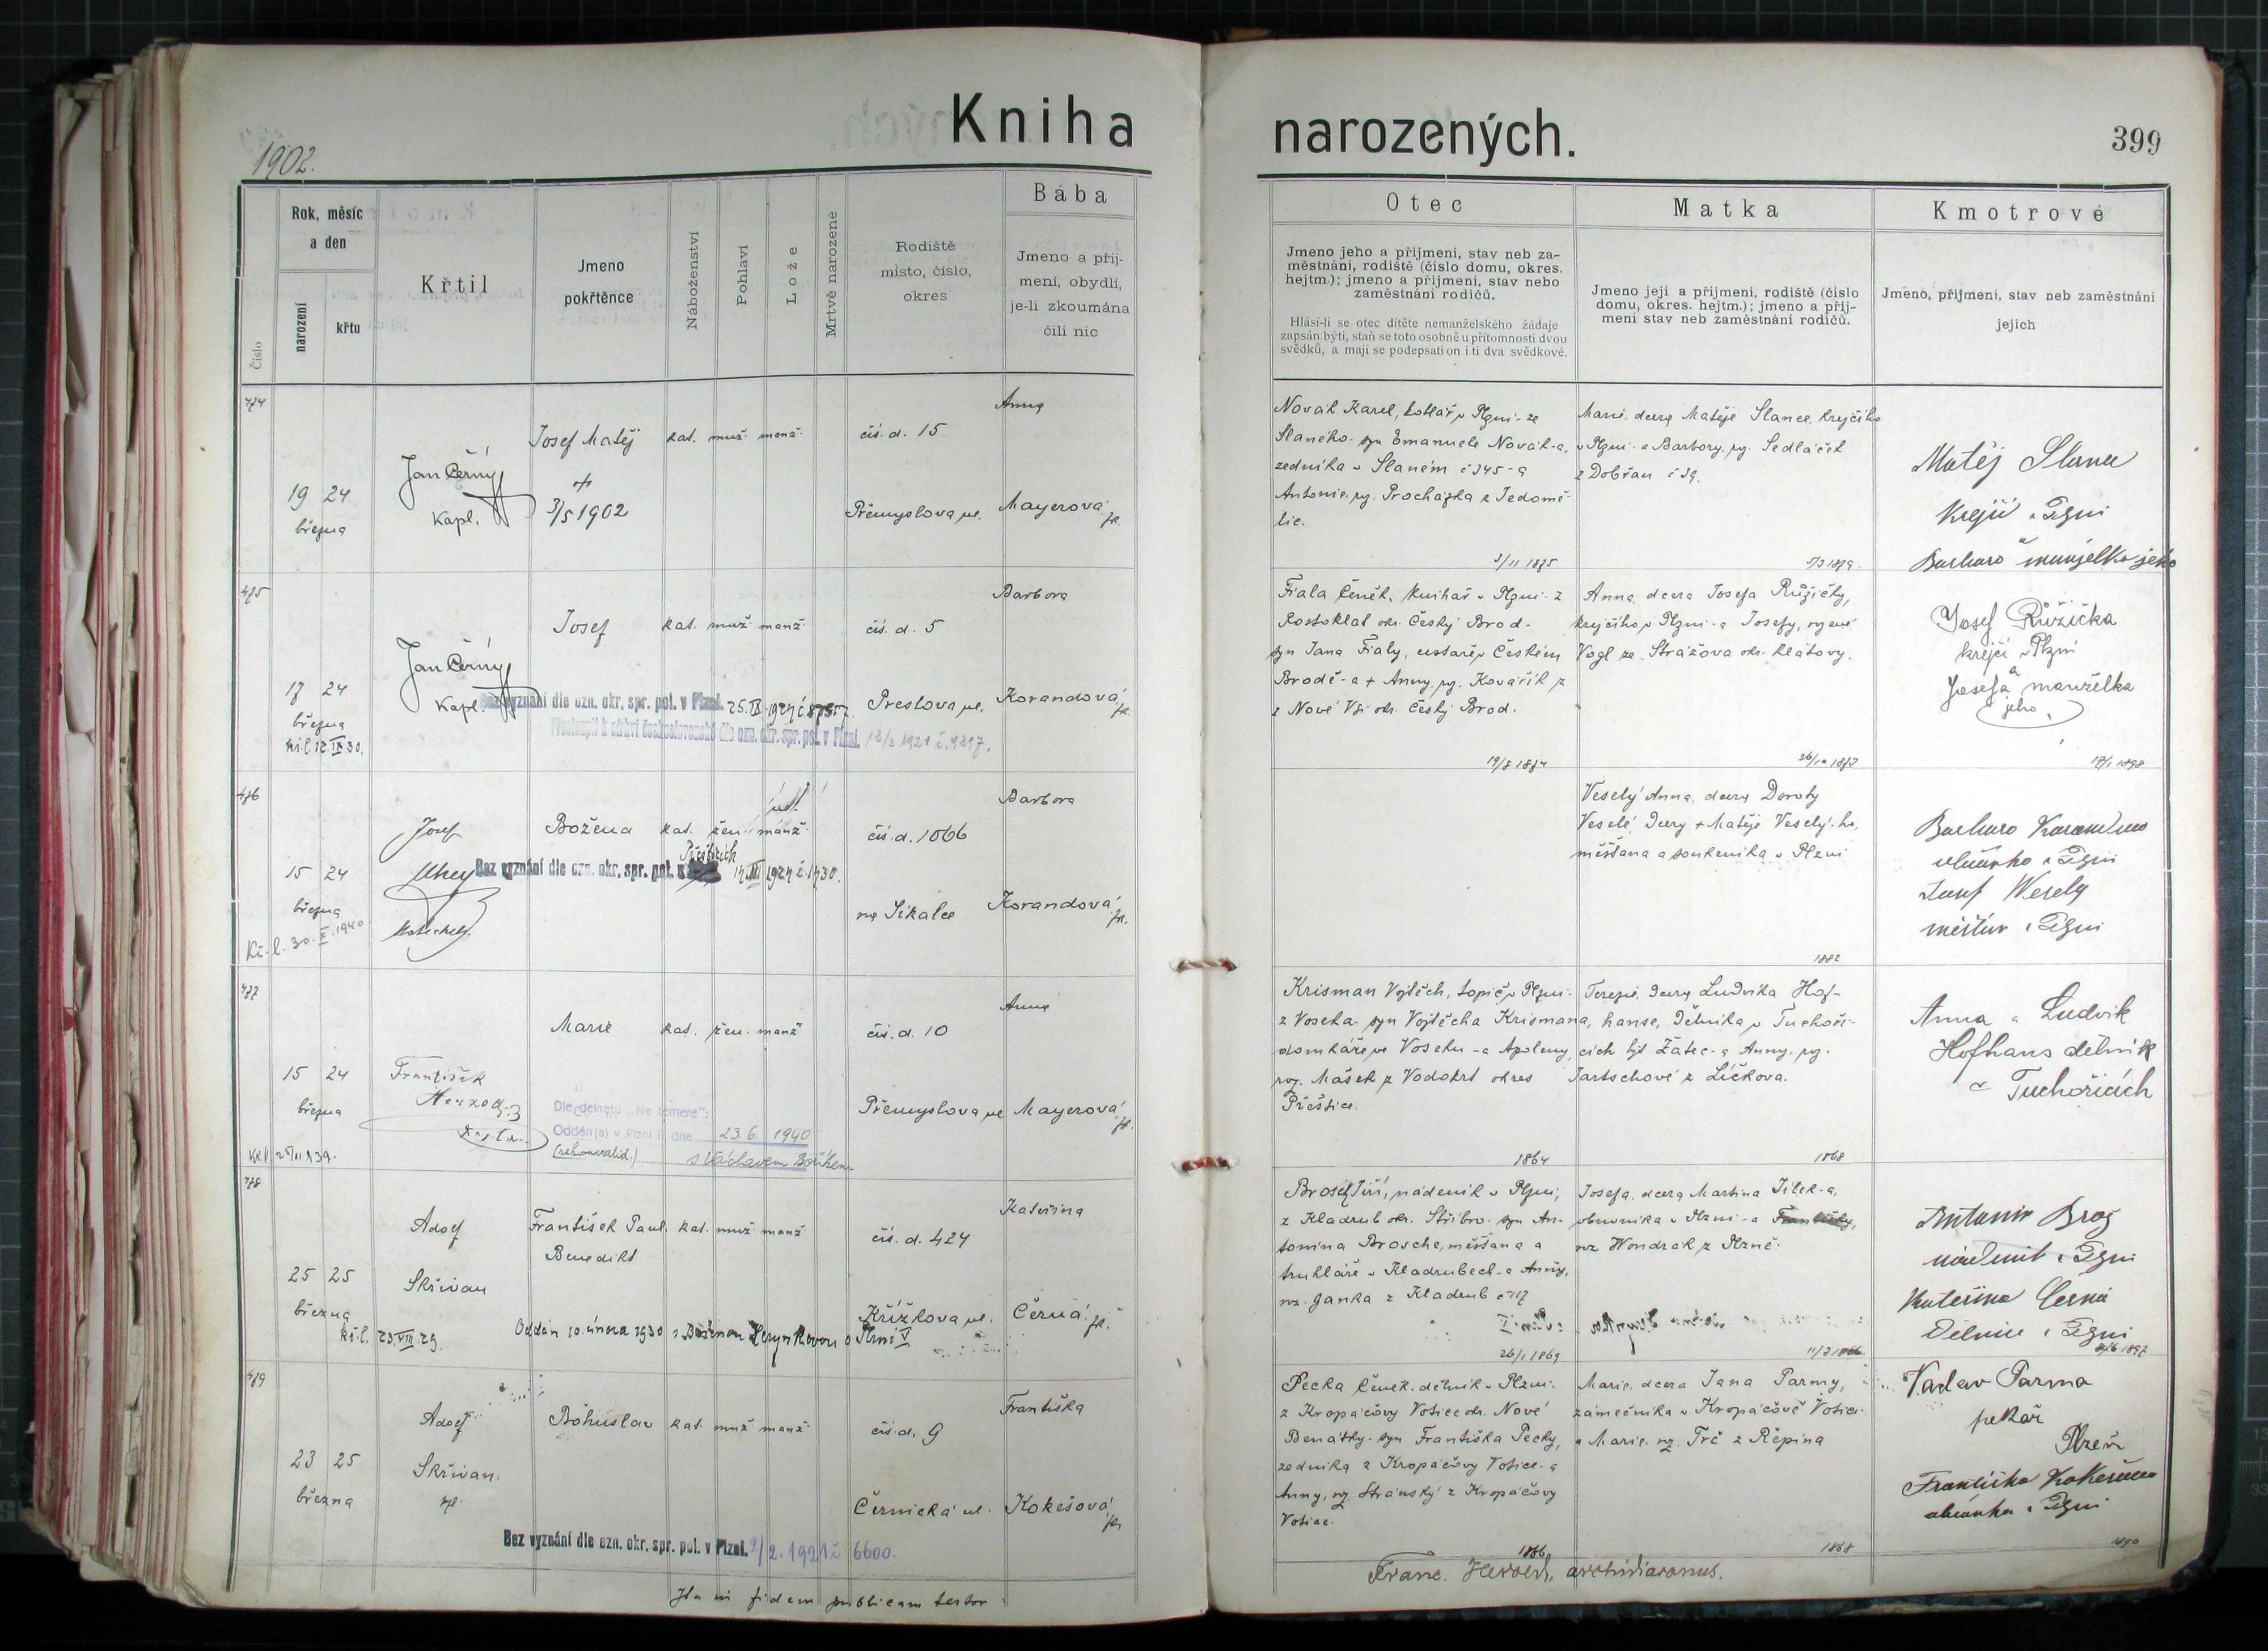 Kniha
narozených.
399
1902.
Číslo
Rok, měsíc
a den
narození
křtu
Křtil
Jmeno
pokřtěnce
Náboženství
Pohlaví
Lože
Mrtvě narozené
Rodiště
místo, číslo,
okres
Bába
Jmeno a příj-
mení, obydlí,
je-li zkoumána
čili nic
Otec
Jmeno jeho a příjmení, stav neb za-
městnání, rodiště (číslo domu, okres.
hejtm.); jmeno a příjmení, stav nebo
zaměstnání rodičů.
Hlásí-li se otec dítěte nemanželského žádaje
zapsán býti, staň se toto osobně u přítomnosti dvou
svědků, a mají se podepsati on i ti dva svědkové.
Matka
Jmeno její a příjmení, rodiště (číslo
domu, okres. hejtm.); jmeno a příj-
mení stav neb zaměstnání rodičů.
Kmotrové
Jmeno, příjmení, stav neb zaměstnání
jejich
474
19 24
března
Jan Černý
Kapl.
Josef Matěj
3/5 1902
kat. muž. manž.
čís. d. 15
Přemyslova ul.
Anna
Mayerová
Novák Karel, kotlář v Plzni - ze
Slaného - syn Emanuele Novák-a,
zedníka v Slaném č 345 - a
Antonie, roz. Procházka z Jedomě-
lic.
Marie, dcera Matěje Slance, krejčího
v Plzni - a Barbory, roz. Sedláček
z Dobřan č 39.
Matěj Slanec
Krejčí v Plzni
Barbora manželka jeho
475
17 24
března
Jan Černý
Kapl.
Josef
kat. muž. manž.
čís. d. 5
Preslova ul.
Barbora
Korandová
Bez vyznání dle ozn. okr. spr. pol. v Plzni.
Přestoupil k církvi československé dle ozn. okr. spr. pol. v Plzni.
Fiala Čeněk, knihař v Plzni - z
Rostoklat okr. Český Brod -
syn Jana Fialy, cestáře v Českém
Brodě - a + Anny, roz. Kovářík
z Nové Vsi okr. Český Brod.
19/8 1874
Anna, dcera Josefa Růžičky,
krejčího v Plzni - a Josefy, rozené
Vogl ze Strážova okr. Klatovy.
Josef Růžička
krejčí v Plzni
a
Josefa manželka
jeho
17/1 1898
476
15 24
března
Kř. l. 30. X. 1940.
Josef
Božena
kat. žen. manž.
čís. d. 1066
na Sikalce
Barbora
Korandová
Bez vyznání dle ozn. okr. spr. pol. v
Přešticích
Veselý Anna, dcera Doroty
Veselé, dcery + Matěje Veselý-ho,
měšťana a soukeníka v Plzni
1882
Barbora Korandova
Josef Wesely
měšťan v Plzni
477
15 24
března
František
Herzog
Marie
kat. žen. manž.
čís. d. 10
Přemyslova ul
Anna
Mayerová
Dle dekretu „Ne temere":
Oddán(a) v Plzni I, dne 23. 6. 1940
s Václavem
Krisman Vojtěch, topič v Plzni -
z Voseka - syn Vojtěcha Krismana,
domkáře ve Voseku - a Apoleny,
roz. Mašek z Vodokrt okres
Přeštice.
1864
Terezie, dcera Ludvíka Hof-
hanse, dělníka v Tuchoři-
cích hjt. Žatec - a Anny, roz.
Jartschové z Líčkova.
1868
Anna a Ludvik
Hofhans dělník
v Tuchořicích
478
25 25
března
Adolf
Skřivan
František Paul.
Benedikt
kat. muž. manž.
čís. d. 424
Křížkova ul.
Kateřina
Černá
Oddán 10. února 1930 s Boženou
Brosch Jiří, nádeník v Plzni,
z Kladrub okr. Stříbro - syn An-
tonína Brosche, měšťana a
truhláře v Kladrubech - a Anny,
roz. Ganka z Kladrub č 117
26/1 1869
Josefa, dcera Martina Jílek-a,
obuvníka v Plzni - a Františky,
roz Wondrak z Plzně.
Antonin Broz
nádeník v Plzni
Kateřina Černá
Dělnice v Plzni
479
23 25
března
Adolf
Skřivan.
Bohuslav
kat. muž. manž.
čís. d. 9
Černická ul.
Františka
Kokešová
Bez vyznání dle ozn. okr. spr. pol. v Plzni. 2/2. 1921 č. 6600.
Pecka Čeněk, dělník v Plzni -
z Kropáčovy Votice okr. Nové
Benátky - syn Františka Pecky,
zedníka z Kropáčovy Votice - a
Anny, roz. Stránský z Kropáčovy
Votice.
1866
Marie, dcera Jana Parmy,
zámečníka v Kropáčově Votici
a Marie, roz. Trč z Řepína
1868
Vaclav Parma
pekař
Plzeň
Františka Kokešova
v Plzni
1890
Ita in fidem publicam testor
Franc. Herold, archidiaconus.